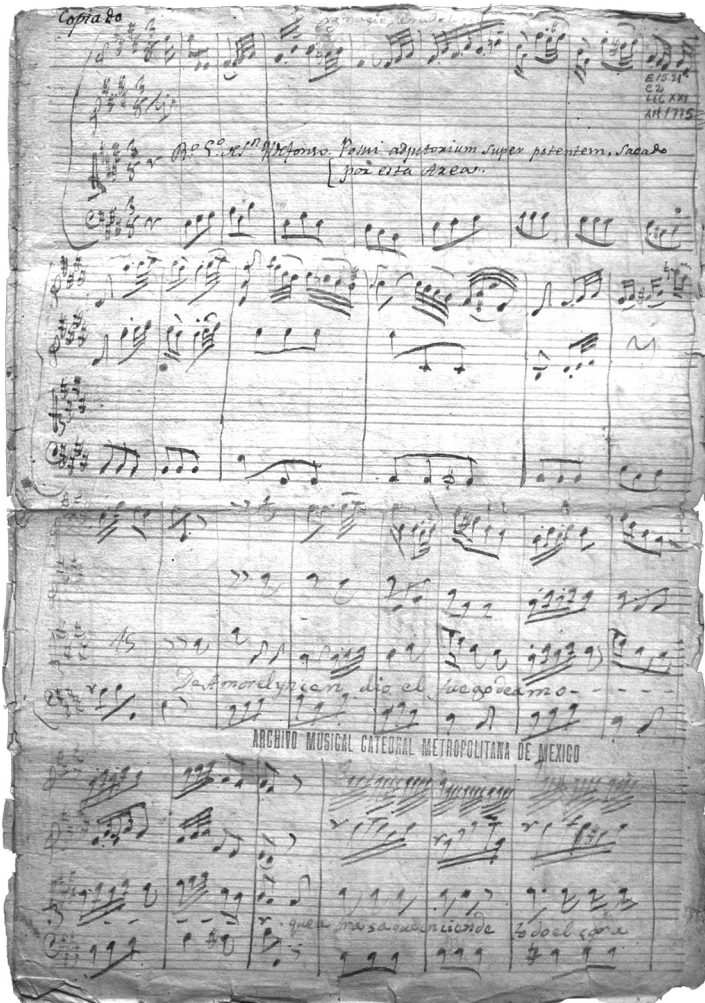 Copiado
E15.21
C2
LEG XXI
AM 1775
Rº 5º de Sn Ildefonso. Posui adjutorium super potentem, sacado
por esta Area.
De Amor el gran dio el fuego de amo - - - -
ARCHIVO MUSICAL CATEDRAL METROPOLITANA DE MEXICO
que abrasa que enciende todo el